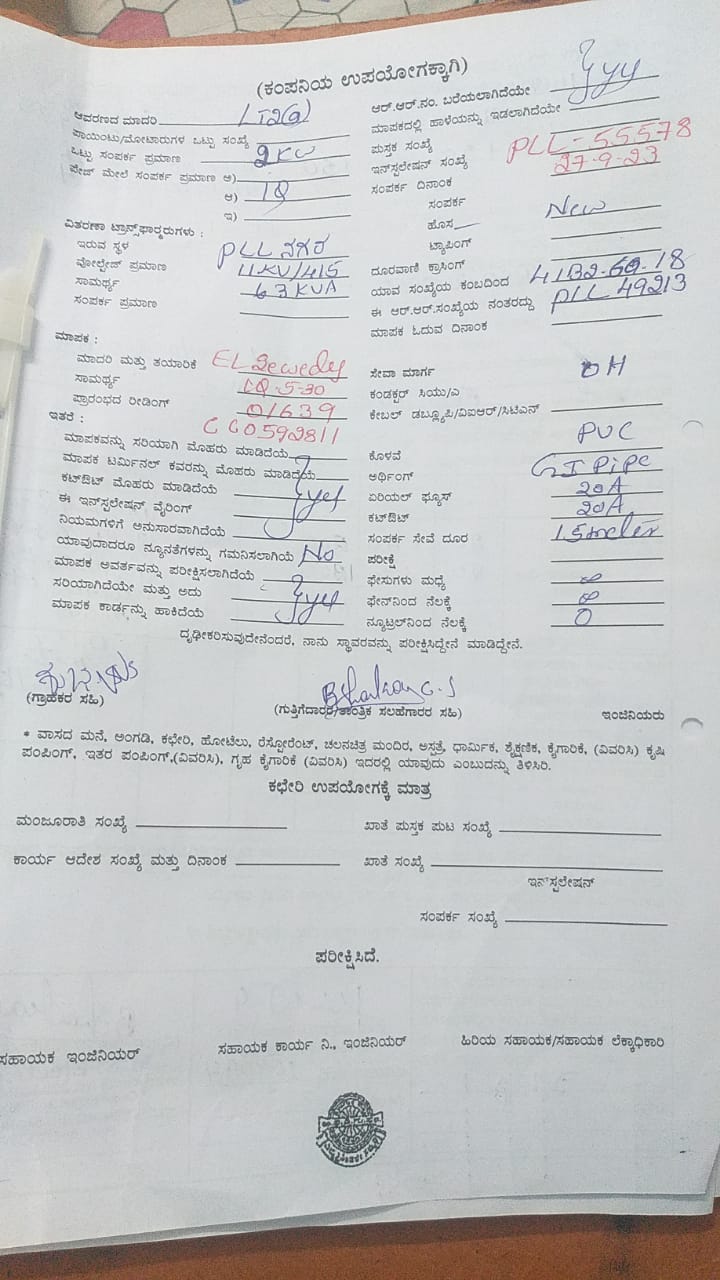 (ಕಂಪನಿಯ ಉಪಯೋಗಕ್ಕಾಗಿ)
ಆವರಣದ ಮಾದರಿ LT2(a)
ಪಾಯಿಂಟು/ಮೋಟಾರುಗಳ ಒಟ್ಟು ಸಂಖ್ಯೆ
ಒಟ್ಟು ಸಂಪರ್ಕ ಪ್ರಮಾಣ 2KW
ಪೇಜ್ ಮೇಲೆ ಸಂಪರ್ಕ ಪ್ರಮಾಣ ಅ)
ಆ) 1Q
ಇ)
ವಿತರಣಾ ಟ್ರಾನ್ಸ್‌ಫಾರ್‍ಮರುಗಳು :
ಇರುವ ಸ್ಥಳ PLL ನಗರ
ವೋಲ್ಟೇಜ್ ಪ್ರಮಾಣ 11KV/415
ಸಾಮರ್ಥ್ಯ 63 KVA
ಸಂಪರ್ಕ ಪ್ರಮಾಣ
ಮಾಪಕ :
ಮಾದರಿ ಮತ್ತು ತಯಾರಿಕೆ
ಸಾಮರ್ಥ್ಯ 1Q-5-30
ಪ್ರಾರಂಭದ ರೀಡಿಂಗ್ 01639
ಇತರೆ : CG0592811
ಮಾಪಕವನ್ನು ಸರಿಯಾಗಿ ಮೊಹರು ಮಾಡಿದೆಯೆ
ಮಾಪಕ ಟರ್ಮಿನಲ್ ಕವರನ್ನು ಮೊಹರು ಮಾಡಿದೆಯೆ
ಕಟ್‌ಔಟ್ ಮೊಹರು ಮಾಡಿದೆಯೆ yes
ಈ ಇನ್‌ಸ್ಟಲೇಷನ್ ವೈರಿಂಗ್
ನಿಯಮಗಳಿಗೆ ಅನುಸಾರವಾಗಿದೆಯೆ
ಯಾವುದಾದರೂ ನ್ಯೂನತೆಗಳನ್ನು ಗಮನಿಸಲಾಗಿಯೆ No
ಮಾಪಕ ಅವರ್ತವನ್ನು ಪರೀಕ್ಷಿಸಲಾಗಿದೆಯೆ
ಸರಿಯಾಗಿದೆಯೇ ಮತ್ತು ಅದು yes
ಮಾಪಕ ಕಾರ್ಡನ್ನು ಹಾಕಿದೆಯೆ
ಆರ್.ಆರ್.ನಂ. ಬರೆಯಲಾಗಿದೆಯೇ
ಮಾಪಕದಲ್ಲಿ ಹಾಳೆಯನ್ನು ಇಡಲಾಗಿದೆಯೇ
ಪುಸ್ತಕ ಸಂಖ್ಯೆ
ಇನ್‌ಸ್ಟಲೇಷನ್ ಸಂಖ್ಯೆ PLL-55578
ಸಂಪರ್ಕ ದಿನಾಂಕ 27-9-23
ಸಂಪರ್ಕ
ಹೊಸ New
ಟ್ಯಾಪಿಂಗ್
ದೂರವಾಣಿ ಕ್ರಾಸಿಂಗ್
ಯಾವ ಸಂಖ್ಯೆಯ ಕಂಬದಿಂದ
ಈ ಆರ್.ಆರ್.ಸಂಖ್ಯೆಯ ನಂತರದ್ದು PLL 49213
ಮಾಪಕ ಓದುವ ದಿನಾಂಕ
ಸೇವಾ ಮಾರ್ಗ OH
ಕಂಡಕ್ಟರ್ ಸಿಯು/ಎ
ಕೇಬಲ್ ಡಬ್ಲ್ಯೂಪಿ/ವಿಐಆರ್/ಸಿಟಿಎಸ್
ಕೊಳವೆ PVC
ಅರ್ಥಿಂಗ್ GI Pipe
ಏರಿಯಲ್ ಫ್ಯೂಸ್ 20A
ಕಟ್‌ಔಟ್ 20A
ಸಂಪರ್ಕ ಸೇವೆ ದೂರ 15meter
ಪರೀಕ್ಷೆ
ಫೇಸುಗಳು ಮಧ್ಯೆ ∞
ಫೇಸ್‌ನಿಂದ ನೆಲಕ್ಕೆ ∞
ನ್ಯೂಟ್ರಲ್‌ನಿಂದ ನೆಲಕ್ಕೆ 0
ದೃಢೀಕರಿಸುವುದೇನೆಂದರೆ, ನಾನು ಸ್ಥಾವರವನ್ನು ಪರೀಕ್ಷಿಸಿದ್ದೇನೆ ಮಾಡಿದ್ದೇನೆ.
(ಗ್ರಾಹಕರ ಸಹಿ)
(ಗುತ್ತಿಗೆದಾರರ/ತಾಂತ್ರಿಕ ಸಲಹೆಗಾರರ ಸಹಿ)
ಇಂಜಿನಿಯರು
* ವಾಸದ ಮನೆ, ಅಂಗಡಿ, ಕಛೇರಿ, ಹೋಟೆಲು, ರೆಸ್ಟೋರೆಂಟ್, ಚಲನಚಿತ್ರ ಮಂದಿರ, ಅಸ್ಪತ್ರೆ, ಧಾರ್ಮಿಕ, ಶೈಕ್ಷಣಿಕ, ಕೈಗಾರಿಕೆ, (ವಿವರಿಸಿ) ಕೃಷಿ
ಪಂಪಿಂಗ್, ಇತರ ಪಂಪಿಂಗ್,(ವಿವರಿಸಿ), ಗೃಹ ಕೈಗಾರಿಕೆ (ವಿವರಿಸಿ) ಇದರಲ್ಲಿ ಯಾವುದು ಎಂಬುದನ್ನು ತಿಳಿಸಿರಿ.
ಕಛೇರಿ ಉಪಯೋಗಕ್ಕೆ ಮಾತ್ರ
ಮಂಜೂರಾತಿ ಸಂಖ್ಯೆ
ಖಾತೆ ಪುಸ್ತಕ ಪುಟ ಸಂಖ್ಯೆ
ಕಾರ್ಯ ಆದೇಶ ಸಂಖ್ಯೆ ಮತ್ತು ದಿನಾಂಕ
ಖಾತೆ ಸಂಖ್ಯೆ
ಇನ್‌ಸ್ಟಲೇಷನ್
ಸಂಪರ್ಕ ಸಂಖ್ಯೆ
ಪರೀಕ್ಷಿಸಿದೆ.
ಸಹಾಯಕ ಇಂಜಿನಿಯರ್
ಸಹಾಯಕ ಕಾರ್ಯ ನಿ., ಇಂಜಿನಿಯರ್
ಹಿರಿಯ ಸಹಾಯಕ/ಸಹಾಯಕ ಲೆಕ್ಕಾಧಿಕಾರಿ